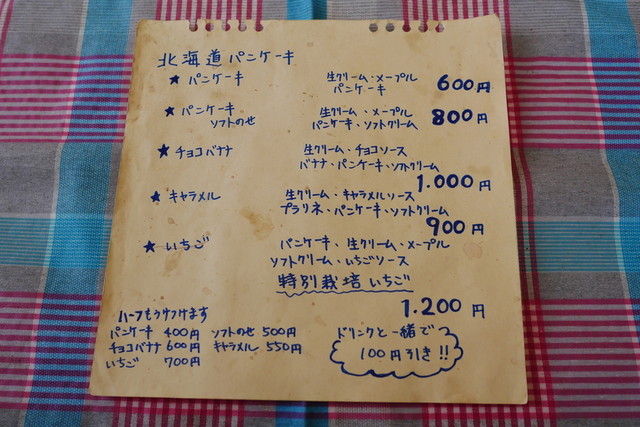 北海道パンケーキ
★ パンケーキ 生クリーム・メープル
パンケーキ 600円
★ パンケーキ 生クリーム・メープル
ソフトのせ パンケーキ・ソフトクリーム 800円
★ チョコバナナ 生クリーム・チョコソース
バナナ・パンケーキ・ソフトクリーム
1.000円
★ キャラメル 生クリーム・キャラメルソース
プラリネ・パンケーキ・ソフトクリーム
900円
★ いちご パンケーキ・生クリーム・メープル
ソフトクリーム・いちごソース
特別栽培いちご
1.200円
ハーフもうけつけます
パンケーキ 400円 ソフトのせ 500円
チョコバナナ 600円 キャラメル 550円
いちご 700円
ドリンクと一緒で
100円引き!!